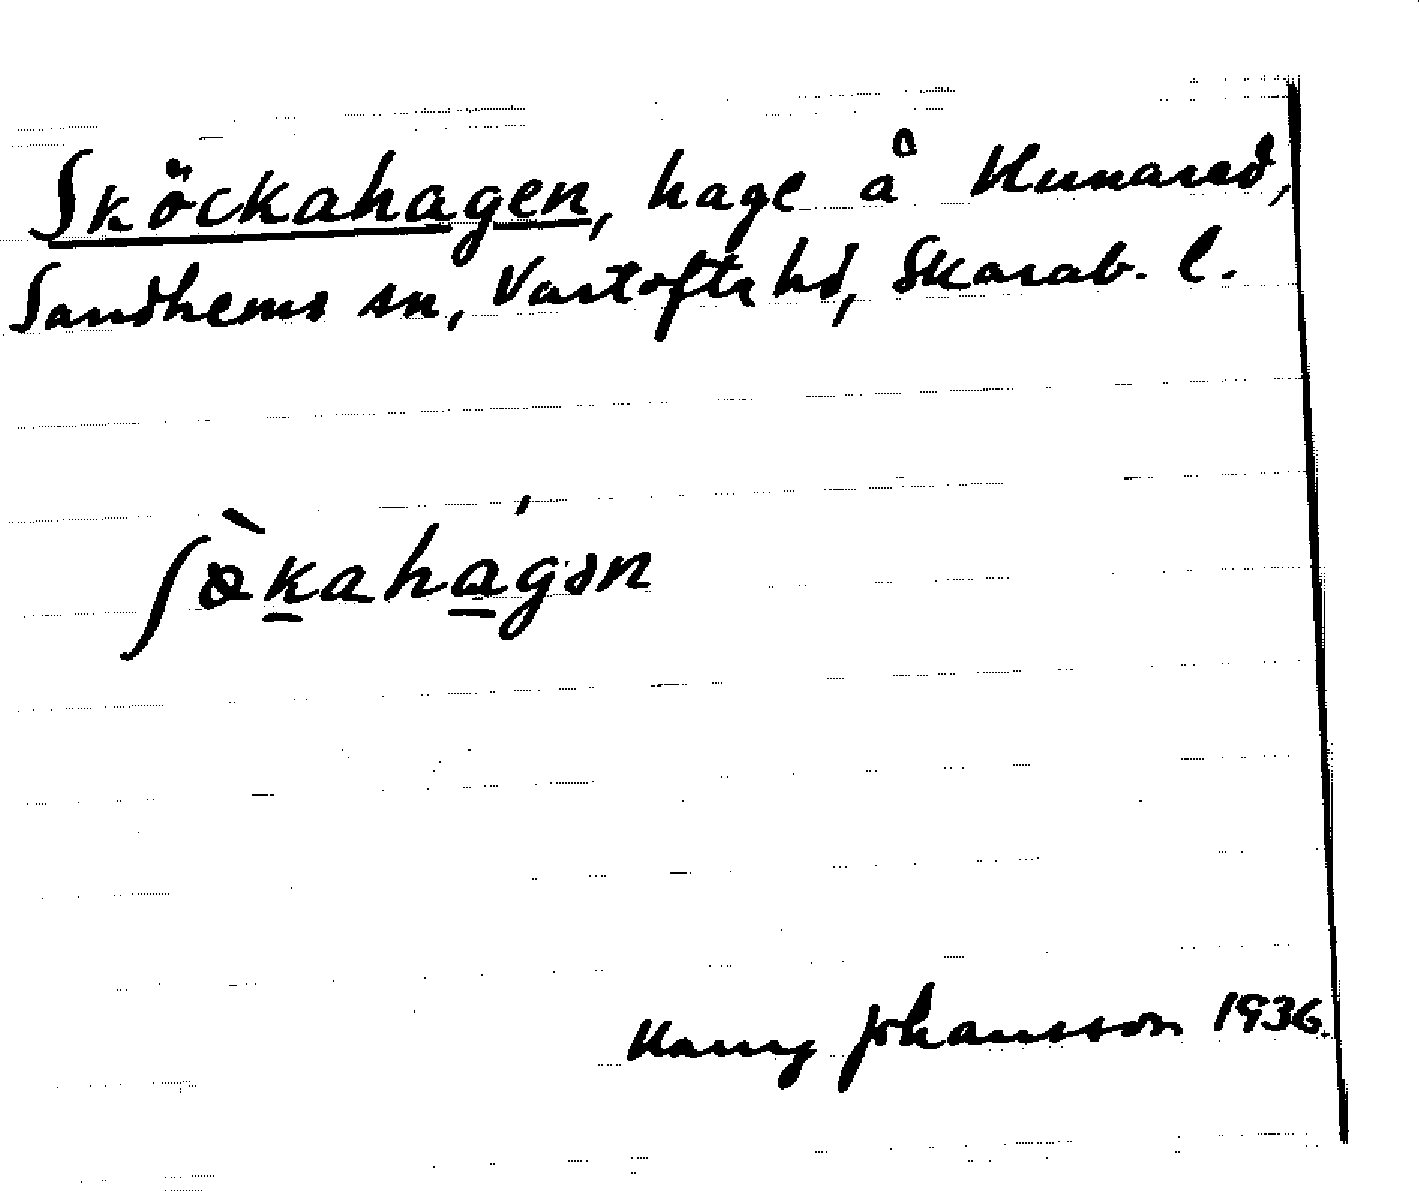 Sköckahagen, hage å Hunared,
Sandhems sn, Vartofta hd, Skarab. l.
ʃø̀kahágən
Harry Johansson 1936.